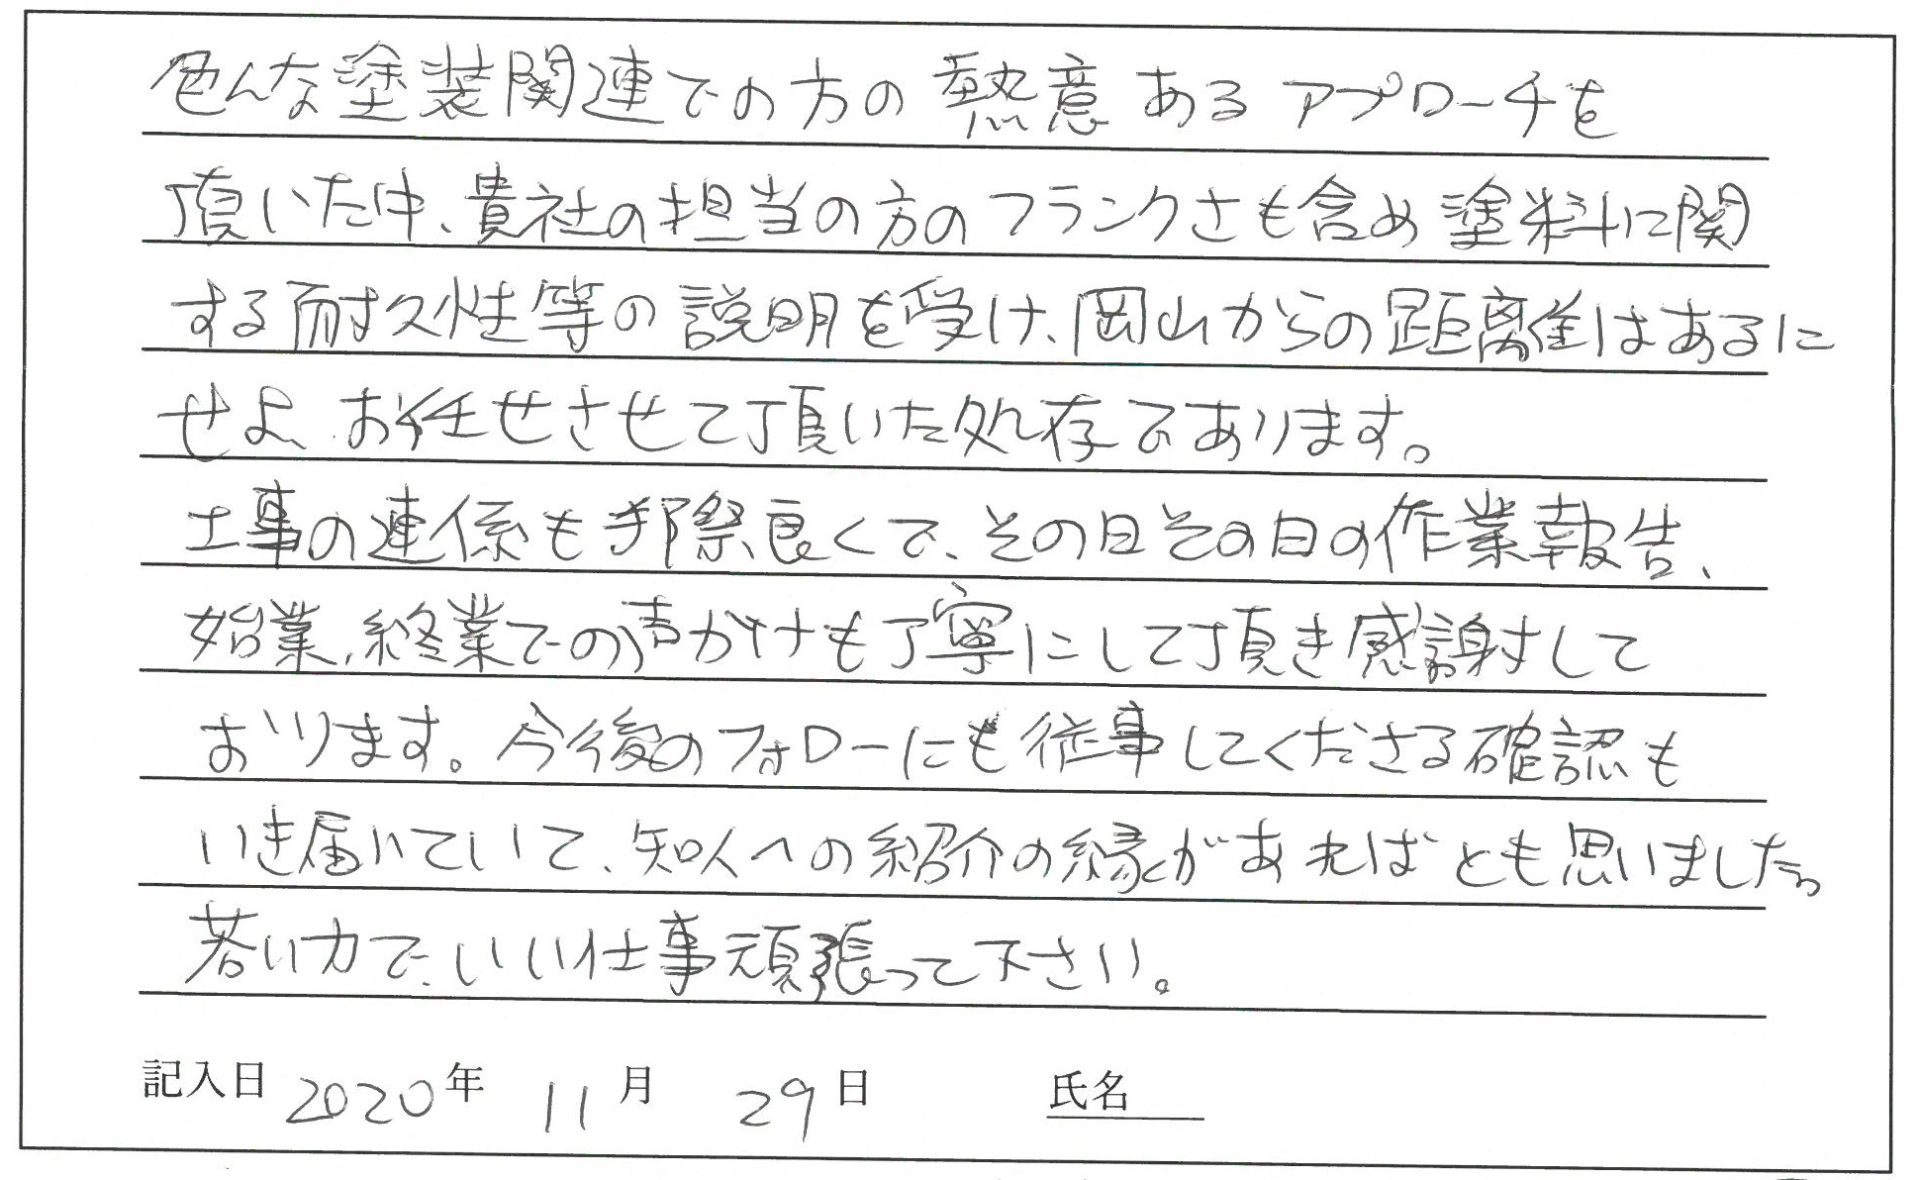 色んな塗装関連での方の熱意あるアプローチを
頂いた中、貴社の担当の方のフランクさも含め塗料に関
する耐久性等の説明を受け、岡山からの距離はあるに
せよ、お任せさせて頂いた処存であります。
工事の連係も手際良くて、その日その日の作業報告、
始業、終業での声かけも丁寧にして頂き感謝して
おります。今後のフォローにも従事してくださる確認も
いき届いていて、知人への紹介の縁があればとも思いました。
若い力で、いい仕事頑張って下さい。
記入日 2020年 11月 29日 氏名